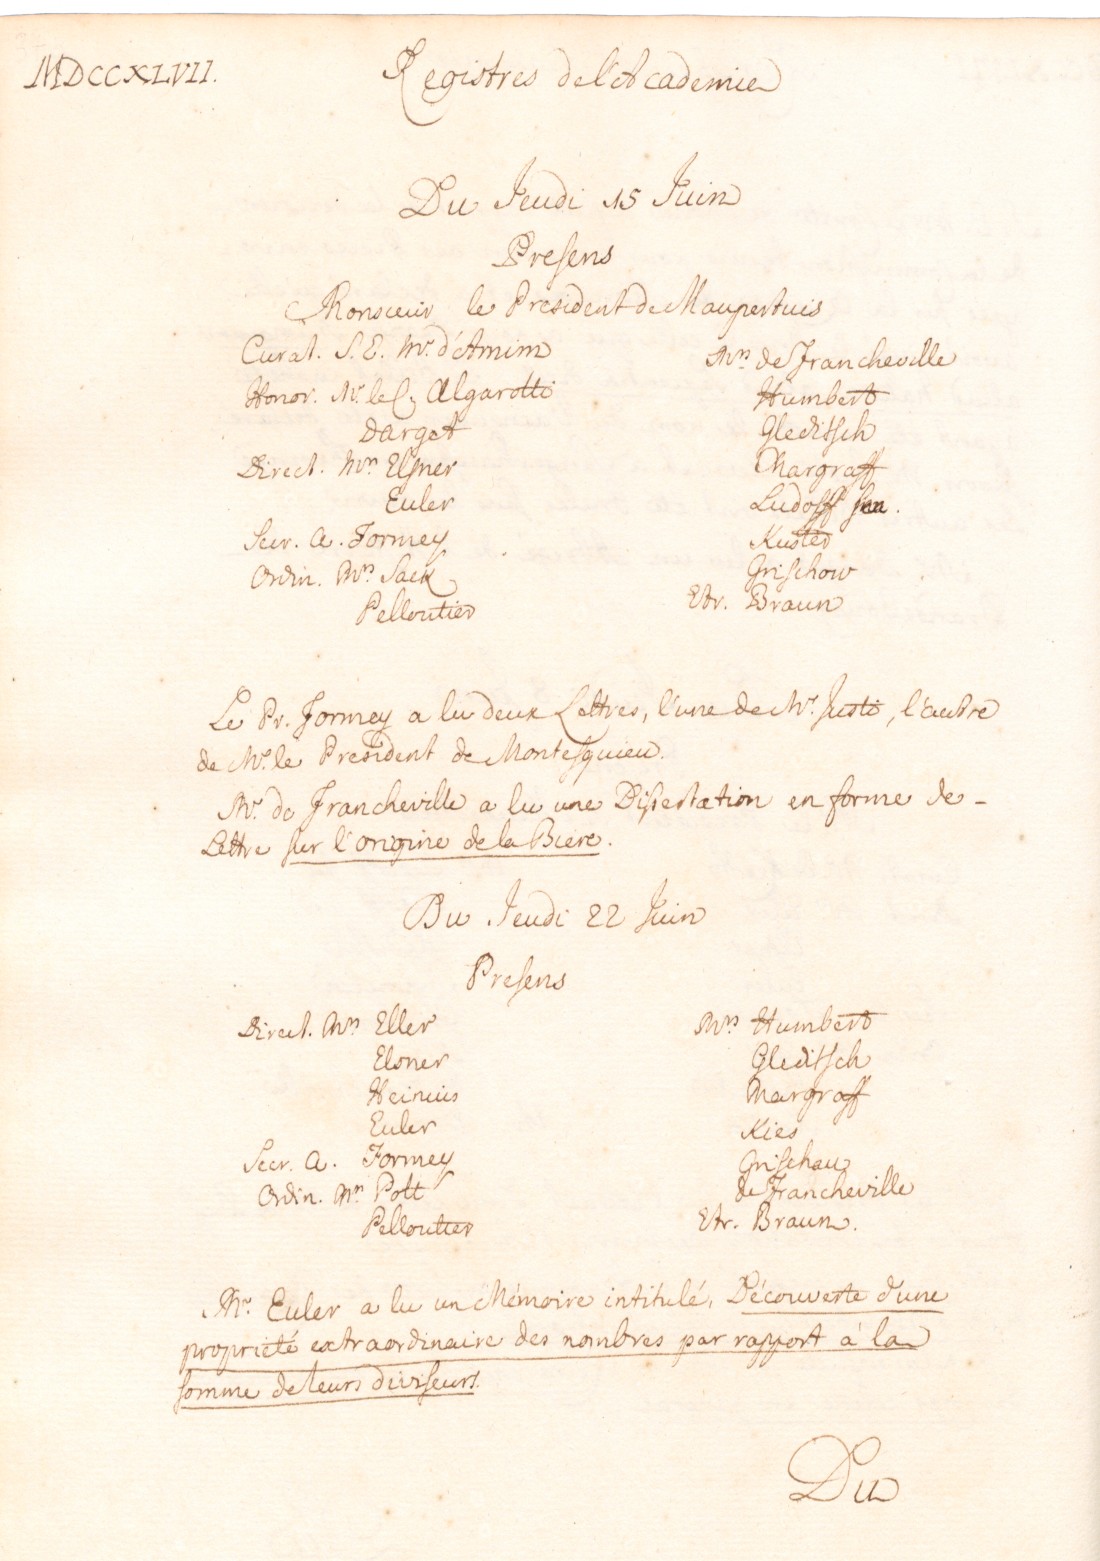 MDCCXLVII.
Registres de l'Academie
Du Jeudi 15 Juin
Presens
Monsieur le President de Maupertuis
Curat. S. E. Mr. d'Arnim
Honor. Mr. le C. Algarotti
Darget
Direct. Mrs Elsner
Euler
Secr. A. Formey
Ordin. Mrs Sack
Pelloutier
Mrs de Francheville
Humbert
Gleditsch
Margraff
Ludolff sen.
Kuster
Grischow
Etr. Braun
Le Pr. Formey a lu deux Lettres, l'une de Mr. Justi, l'autre
de Mr. le President de Montesquieu.
Mr. de Francheville a lu une Dissertation en forme de
Lettre sur l'origine de la Biere.
Du Jeudi 22 Juin
Presens
Direct. Mrs Eller
Elsner
Heinius
Euler
Secr. A. Formey
Ordin. Mrs Pott
Pelloutier
Mrs Humbert
Gleditsch
Margraff
Kies
Grischau
de Francheville
Etr. Braun.
Mr. Euler a lu un Mémoire intitulé, Découverte d'une
proprieté extraordinaire des nombres par rapport à la
somme de leurs diviseurs.
Du